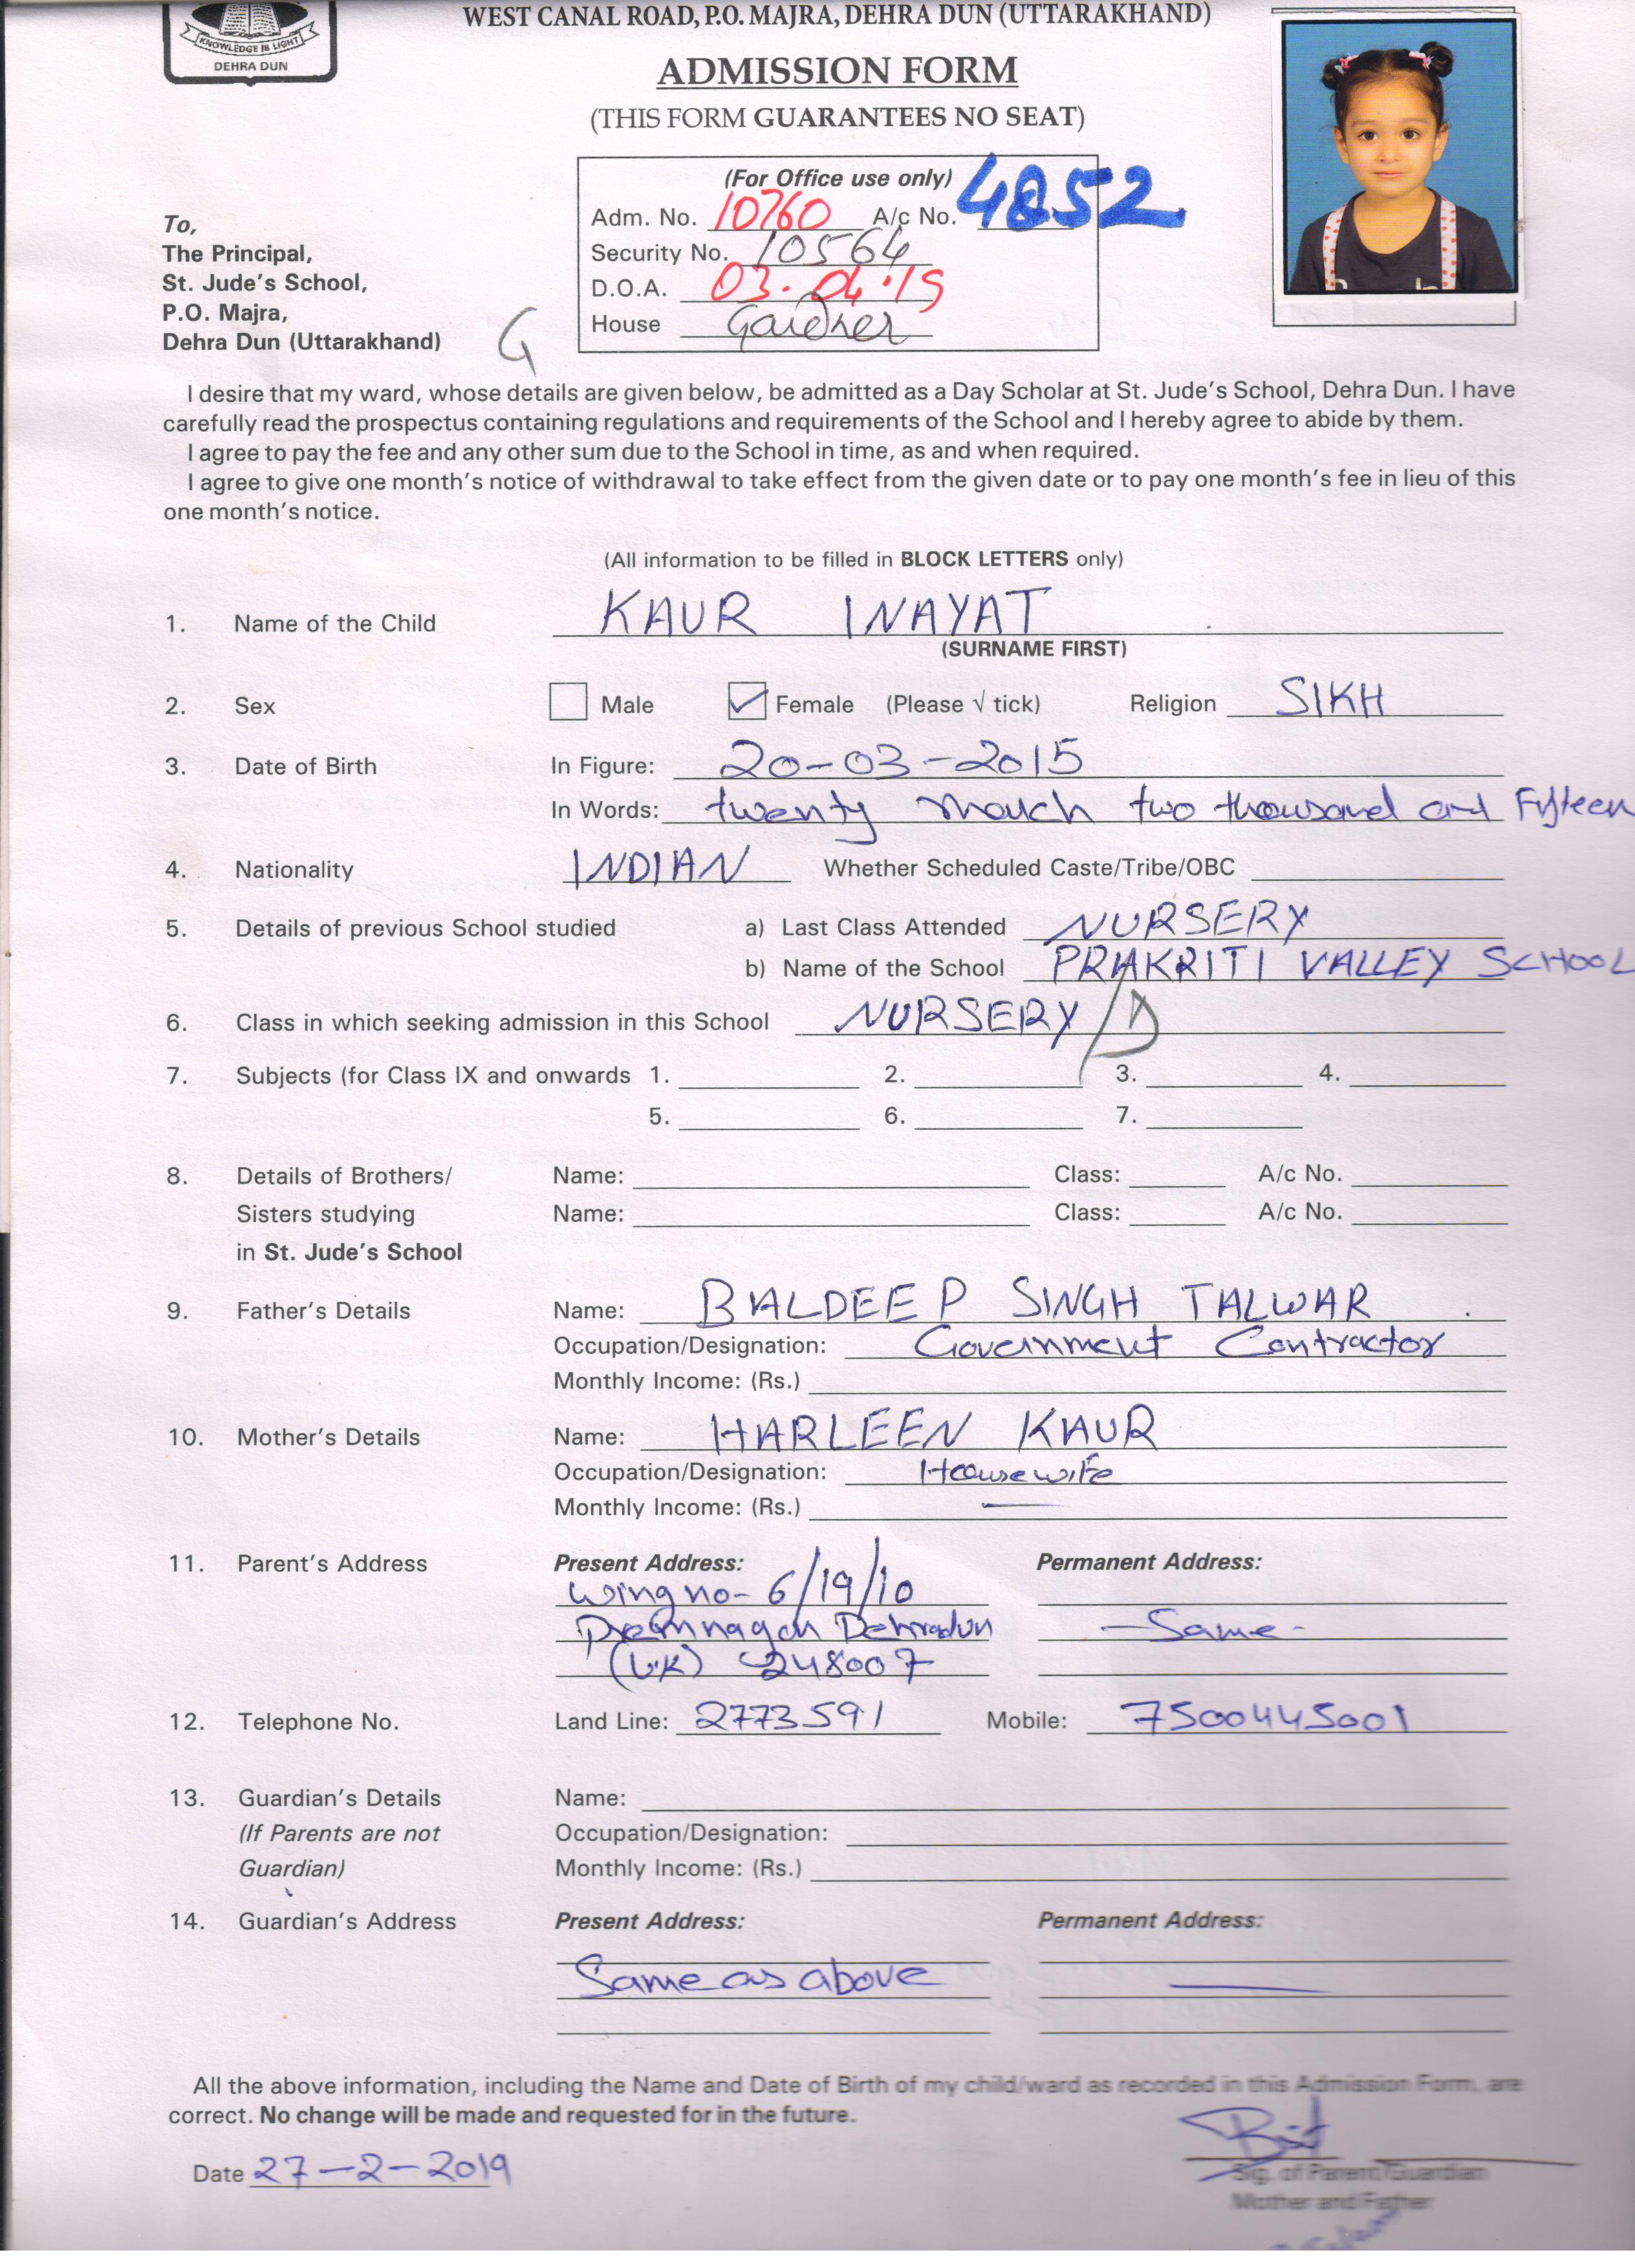 WEST CANAL ROAD, P.O. MAJRA, DEHRA DUN (UTTARAKHAND)
KNOWLEDGE IS LIGHT
DEHRA DUN
ADMISSION FORM
(THIS FORM GUARANTEES NO SEAT)
(For Office use only)
Adm. No. 10760 A/c No. 4852
Security No. 10564
D.O.A. 03.04.19
House Gardner
To,
The Principal,
St. Jude's School,
P.O. Majra,
Dehra Dun (Uttarakhand)
G
I desire that my ward, whose details are given below, be admitted as a Day Scholar at St. Jude's School, Dehra Dun. I have
carefully read the prospectus containing regulations and requirements of the School and I hereby agree to abide by them.
I agree to pay the fee and any other sum due to the School in time, as and when required.
I agree to give one month's notice of withdrawal to take effect from the given date or to pay one month's fee in lieu of this
one month's notice.
(All information to be filled in BLOCK LETTERS only)
1. Name of the Child KAUR INAYAT
(SURNAME FIRST)
2. Sex Male Female (Please √ tick) Religion SIKH
3. Date of Birth In Figure: 20-03-2015
In Words: twenty March two thousand and Fifteen
4. Nationality INDIAN Whether Scheduled Caste/Tribe/OBC
5. Details of previous School studied a) Last Class Attended NURSERY
b) Name of the School PRAKRITI VALLEY SCHOOL
6. Class in which seeking admission in this School NURSERY/D
7. Subjects (for Class IX and onwards 1. 2. 3. 4.
5. 6. 7.
8. Details of Brothers/ Name: Class: A/c No.
Sisters studying Name: Class: A/c No.
in St. Jude's School
9. Father's Details Name: BALDEEP SINGH TALWAR
Occupation/Designation: Government Contractor
Monthly Income: (Rs.)
10. Mother's Details Name: HARLEEN KAUR
Occupation/Designation: Housewife
Monthly Income: (Rs.) —
11. Parent's Address Present Address: Permanent Address:
Wing no- 6/19/10
Premnagar Dehradun - Same -
(U.K) 248007
12. Telephone No. Land Line: 2773591 Mobile: 7500445001
13. Guardian's Details Name:
(If Parents are not Occupation/Designation:
Guardian) Monthly Income: (Rs.)
14. Guardian's Address Present Address: Permanent Address:
Same as above —
All the above information, including the Name and Date of Birth of my child/ward as recorded in this Admission Form, are
correct. No change will be made and requested for in the future.
Date 27-2-2019
Sig. of Parent/Guardian
Mother and Father